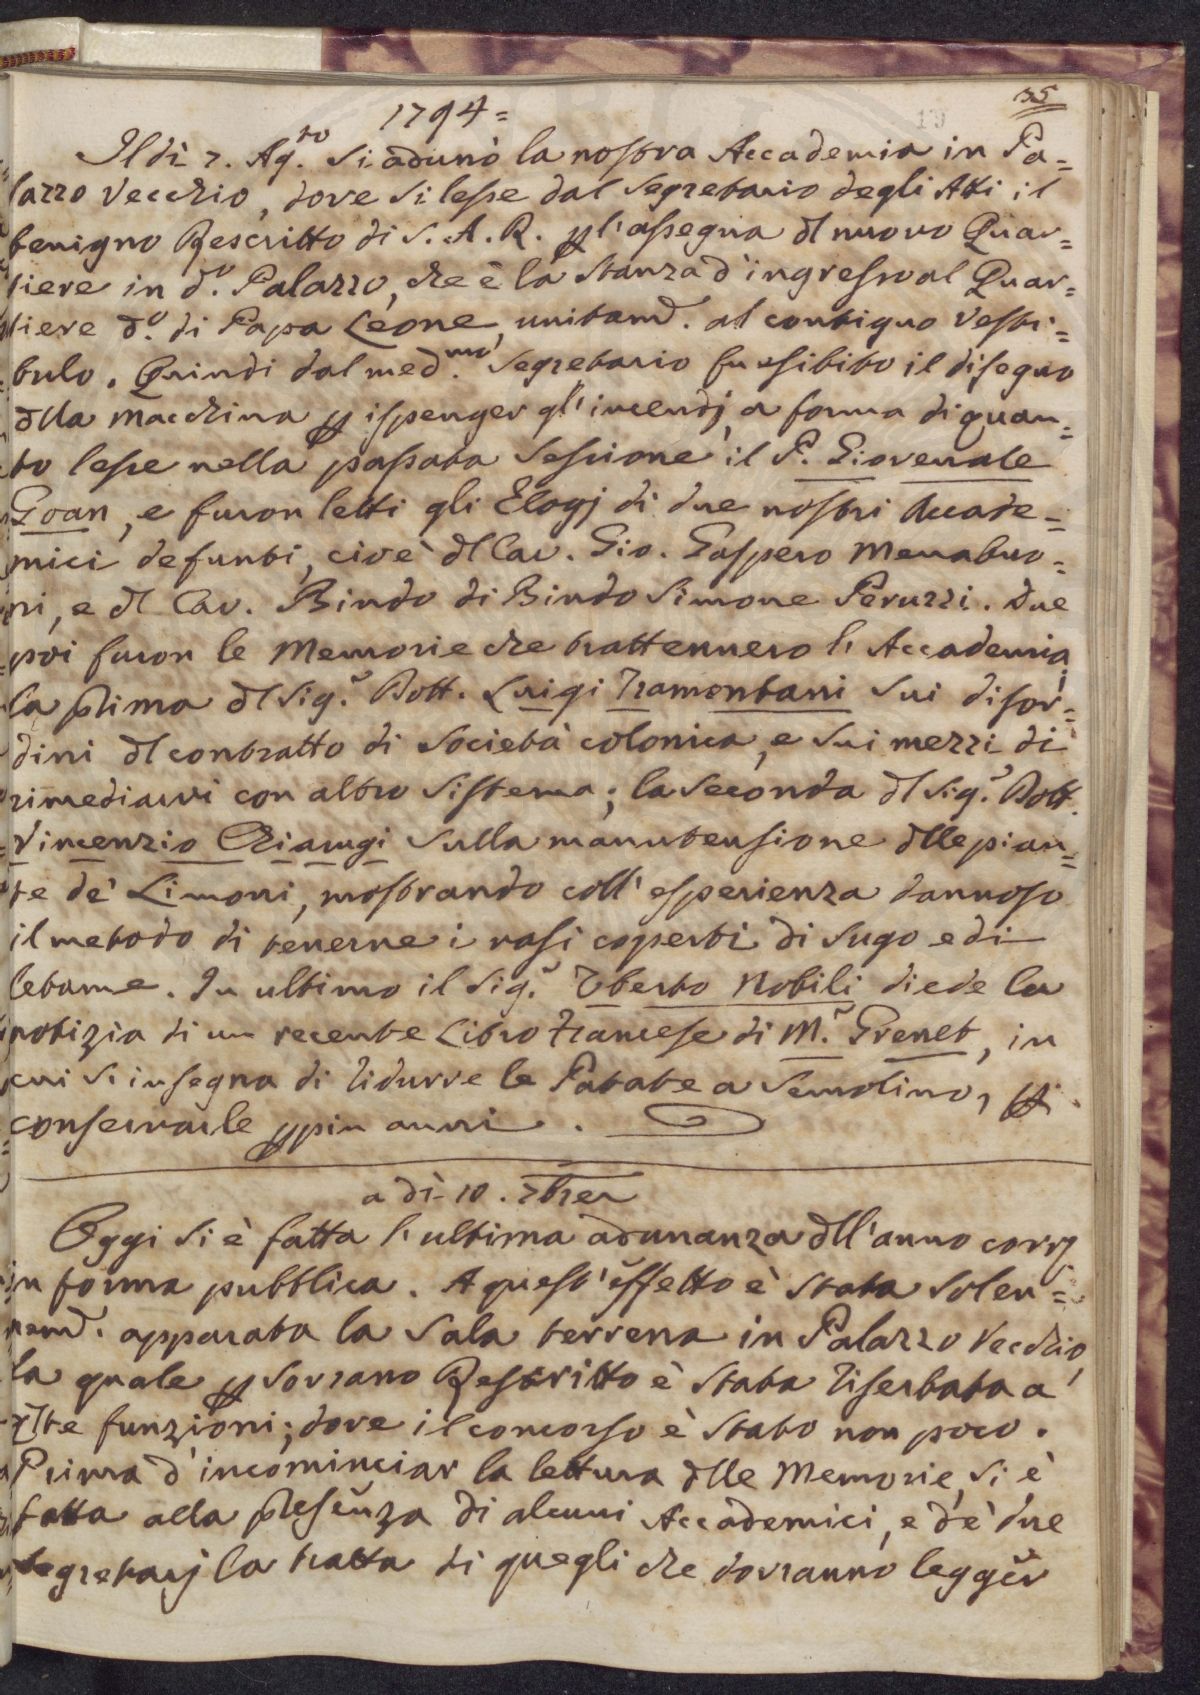 35
1794=
Il dì 7. Ag.to si adunò la nostra Accademia in Pa=
lazzo Vecchio, dove si lesse dal Segretario degli Atti il
benigno Rescritto di S. A. R. p l'assegna dl nuovo Quar=
tiere in d.o Palazzo, che è la stanza d'ingresso al Quar=
tiere d.o di Papa Leone, unitamd. al contiguo Vesti=
bulo. Quindi dal med.mo Segretario fu esibito il disegno
dlla macchina p ispenger gl'incendj, a forma di quan=
to lesse nella passata Sessione il P. Giovenale
Goan, e furon letti gli Elogj di due nostri Accade=
mici defunti, cioè dl Cav. Gio. Gaspero Menabuo=
ni, e dl Cav. Bindo di Bindo Simone Peruzzi. Due
poi furon le Memorie che trattennero l'Accademia,
la prima dl Sig.r Dott. Luigi Tramontani sui disor=
dini dl contratto di società colonica, e sui mezzi di
rimediarvi con altro sistema; la seconda dl Sig.r Dott.
Vincenzio Chiarugi sulla manutensione dlle pian=
te de' Limoni, mostrando coll'esperienza dannoso
il metodo di tenerne i vasi coperti di sugo e di
letame. In ultimo il Sig.r Uberto Nobili diede la
notizia di un recente Libro Francese di M.r Grenet, in
cui s'insegna di ridurre le Patate a Semolino, p
conservarle p più anni.
a dì 10. 7brer
Oggi si è fatta l'ultima adunanza dll'anno corr.
in forma pubblica. A quest'effetto è stata solen=
nemd. apparata la Sala terrena in Palazzo Vecchio,
la quale p Sovrano Rescritto è stata riserbata a
tlte funzioni; dove il concorso è stato non poco.
Prima d'incominciar la lettura dlle Memorie, si è
fatta alla presenza di alcuni Accademici, e de' due
Segretarj la tratta di quegli che dovranno legger